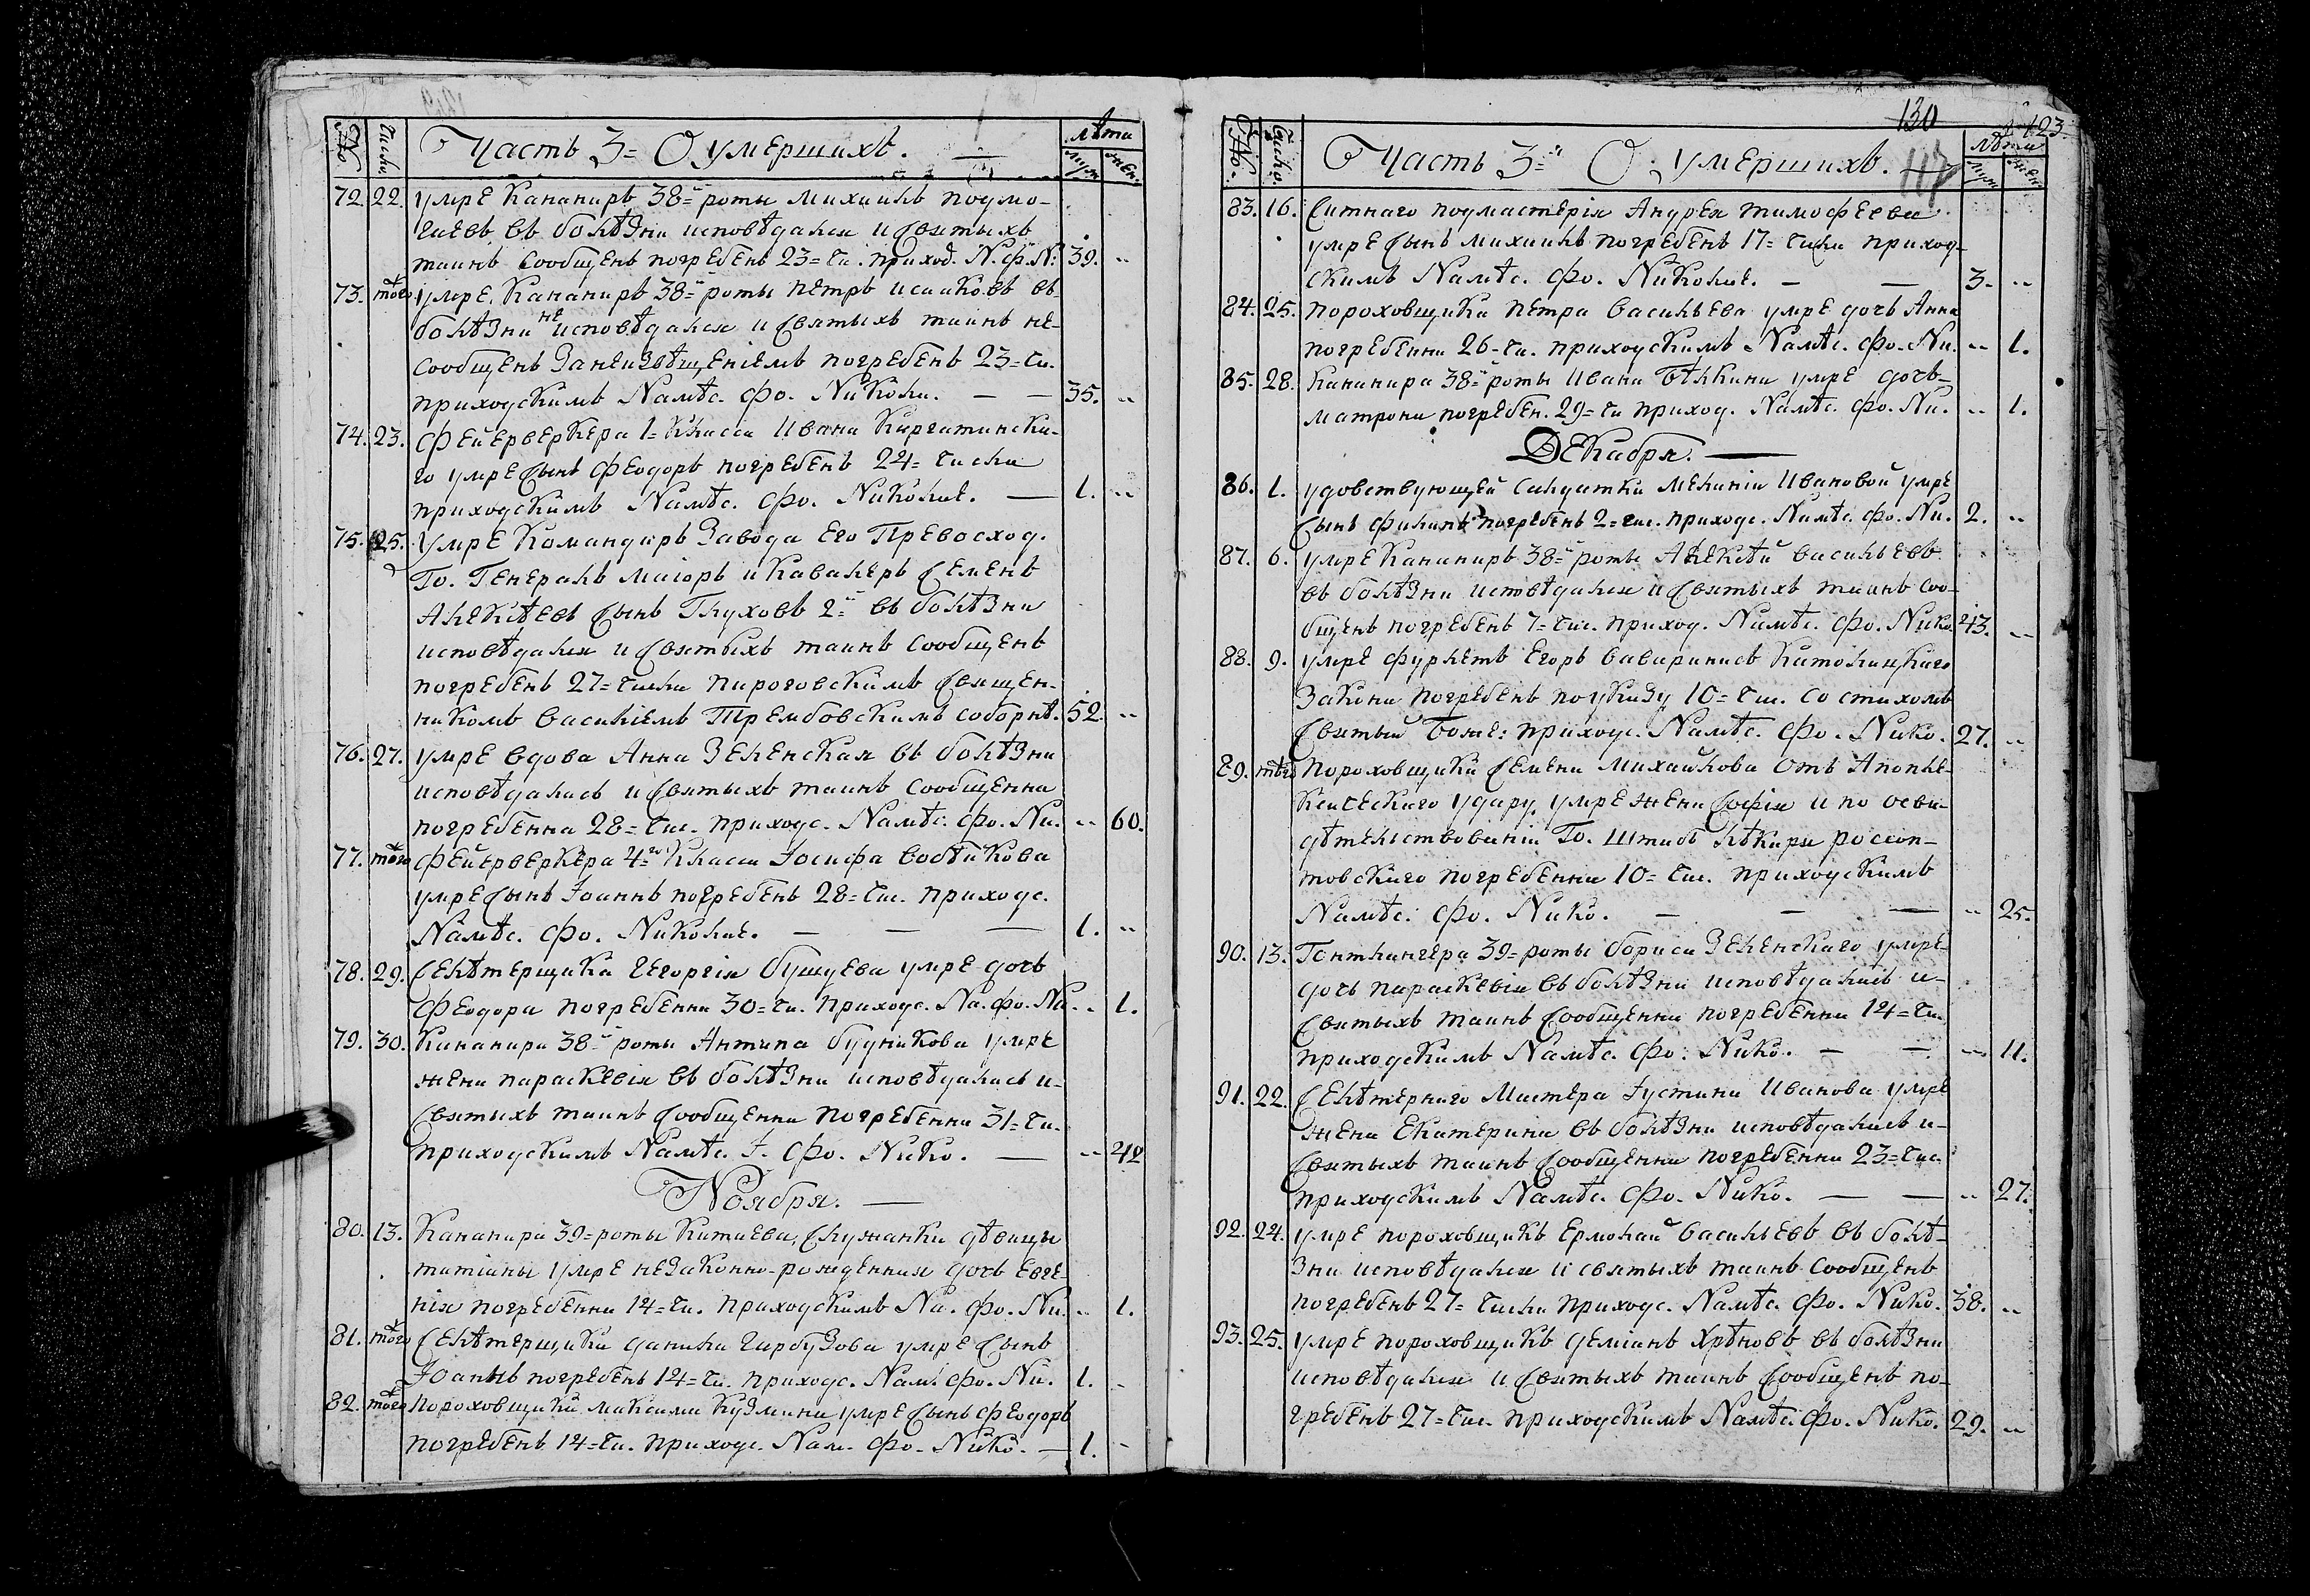 № Число Часть 3= О умершихъ. лѣта
муж. жен.
72. 22. умре Кананиръ 38=й роты Михаилъ подмо-
гиевъ, въ болѣзни исповѣдался и Святыхъ
таинъ Сообщенъ погребенъ 23= чи. приход. N. ф. N: 39. ..
73. того умре, Кананиръ 38=й роты Петръ исаиковъ въ
болѣзни не исповѣдался и Святыхъ таинъ не-
сообщенъ Занеизвѣщеніемъ погребенъ 23= чи.
приходскимъ Намѣс. Фо. Николи. — — 35. ..
74. 23. Фейерверкера 1= Класса Ивана Каргатинска-
го умре сынъ Феодоръ погребенъ 24= числа
приходскимъ Намѣс. Фо. Николае. — 1. ..
75. 25. Умре Командиръ Завода Его Превосход.
Го. Генералъ Маіоръ и Кавалеръ Семенъ
Алексѣевъ Сынъ Глуховъ 2=й въ болѣзни
исповѣдался и Святыхъ таинъ Сообщенъ
погребенъ 27= числа Пироговскимъ Священ-
никомъ Василіемъ Трембовскимъ соборнѣ. 52. ..
76. 27. умре вдова Анна Зеленская въ болѣзни
исповѣдалась и Святыхъ таинъ Сообщенна
погребенна 28= чис. приходс. Намѣс. Фо. Ни. .. 60.
77. того Фейерверкера 4=го Класса Іосифа Вовѣикова
умре Сынъ Іоаннъ погребенъ 28= чис. приходс.
Намѣс. Фо. Николае. — — — 1. ..
78. 29. Селѣтерщика Георгія бушуева умре дочь
Феодора погребенна 30= чи. приходс. На. Фо. Ни .. 1.
79. 30. Кананира 38=й роты Антипа будникова умре
жена параскевія въ болѣзни исповѣдалась и-
Святыхъ таинъ Сообщенна погребенна 31= чи.
приходскимъ Намѣс. I. Фо. Нико. — .. 42
Ноября. —
80. 13. Кананира 39= роты Китаева, Служанки дѣвицы
татіаны умре незаконно-рожденная дочь Евге-
нія погребенна 14= чи. приходскимъ На. Фо. Ни. .. 1.
81. того Селѣтерщика данила гарбузова умре Сынъ
Іоаннъ погребенъ 14= чи. приходс. Нам. Фо. Ни. 1. ..
82. того Пороховщика максима Кузмина умре Сынъ Феодоръ
погребенъ 14= чи. приходс. Нам. Фо. Нико. — 1. ..
130
123.
117
№. Число. Часть 3=я О умершихъ. лѣта
муж жен
83. 16. Ситнаго подмастерія Андрея тимофеева
умре Сынъ михаилъ погребенъ 17= числа приход-
скимъ Намѣс. Фо. Николае. — — 3. ..
84. 25. пороховщика Петра Васильева умре дочь Анна
погребенна 26= чи. приходскимъ Намѣс. Фо. Ни. .. 1.
85. 28. Кананира 38=й роты Ивана Бѣлкина умре дочь
матрона погребен. 29= чи приход. Намѣс. Фо. Ни. .. 1.
Декабря. —
86. 1. удовствующей Салдатки меланіи Ивановой умре
Сынъ филипъ погребенъ 2= чис. приходс. Намѣс. Фо. Ни. 2. ..
87. 6. умре Кананиръ 38=й роты Алексѣй Васильевъ
въ болѣзни исповѣдался и Святыхъ таинъ соо-
бщенъ погребенъ 7= чис. приход. Намѣс. Фо. Нико. 43. ..
88. 9. умре фурлетъ Егоръ Католицкаго
Закона погребенъ по указу 10= чис. со стихомъ
Святый Боже: приходс. Намѣс. Фо. Нико. 27. ..
89. того Пороховщика Семена Михайлова отъ Апопле-
ксическаго удару умре жена Софія и по осви-
дѣтельствованіи Го. Штабъ лѣкаря россоп-
товскаго погребенна 10= чис. приходскимъ
Намѣс. Фо. Нико. — — — .. 25.
90. 13. Гантлангера 39= роты бориса Зеленскаго умре-
дочь параскевія въ болѣзни исповѣдалась и-
Святыхъ таинъ Сообщенна погребенна 14= чи.
приходскимъ Намѣс. Фо. Нико. — — .. 11.
91. 22. Селѣтернаго Мастера Іустина Иванова умре
жена Екатерина въ болѣзни исповѣдалась и-
Святыхъ таинъ Сообщенна погребенна 23= чис.
приходскимъ Намѣс. Фо. Нико. — — .. 27.
92. 24. умре пороховщикъ Ермолай Васильевъ въ болѣ-
зни исповѣдался и святыхъ таинъ сообщенъ
погребенъ 27= числа приходс. Намѣс. Фо. Нико. 38. ..
93. 25. умре пороховщикъ Деміанъ Хрѣновъ въ болѣзни
исповѣдался и Святыхъ таинъ Сообщенъ по-
гребенъ 27= чис. приходскимъ Намѣс. Фо. Нико. 29. ..